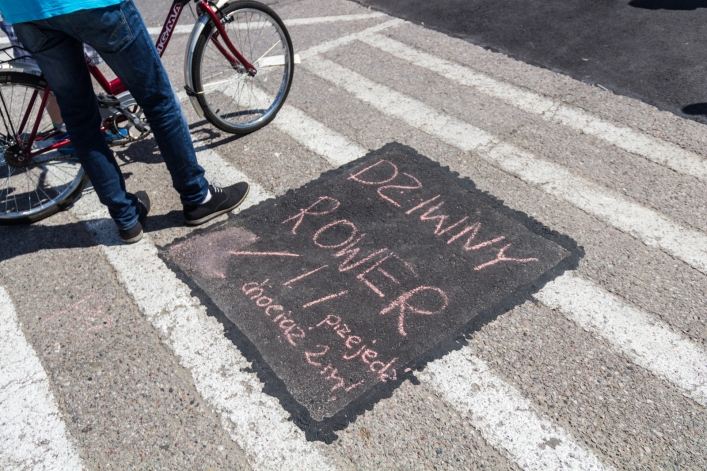 DZIWNY
ROWER
chociaż
przejedź
2 m!